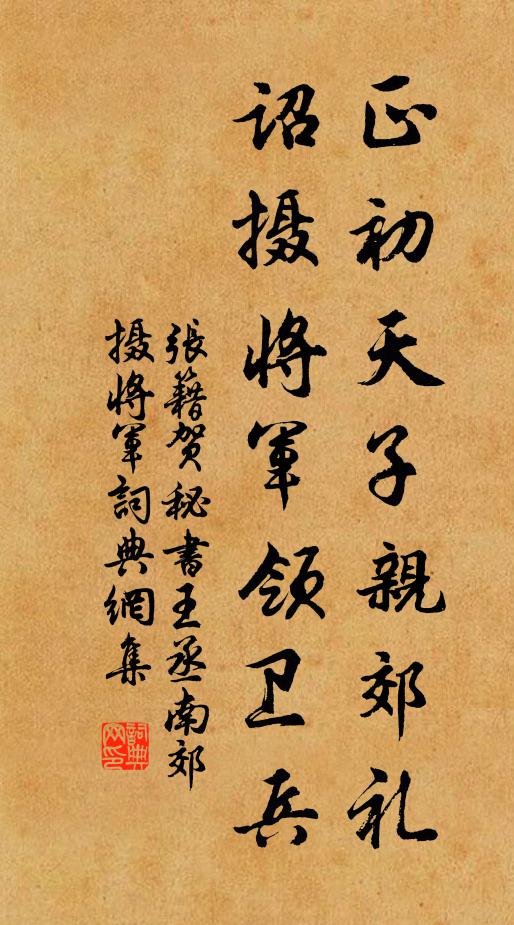 正初天子親郊礼
诏摄將軍领卫兵
張籍贺秘書王丞南郊
摄將軍詞典網集
詞典网印